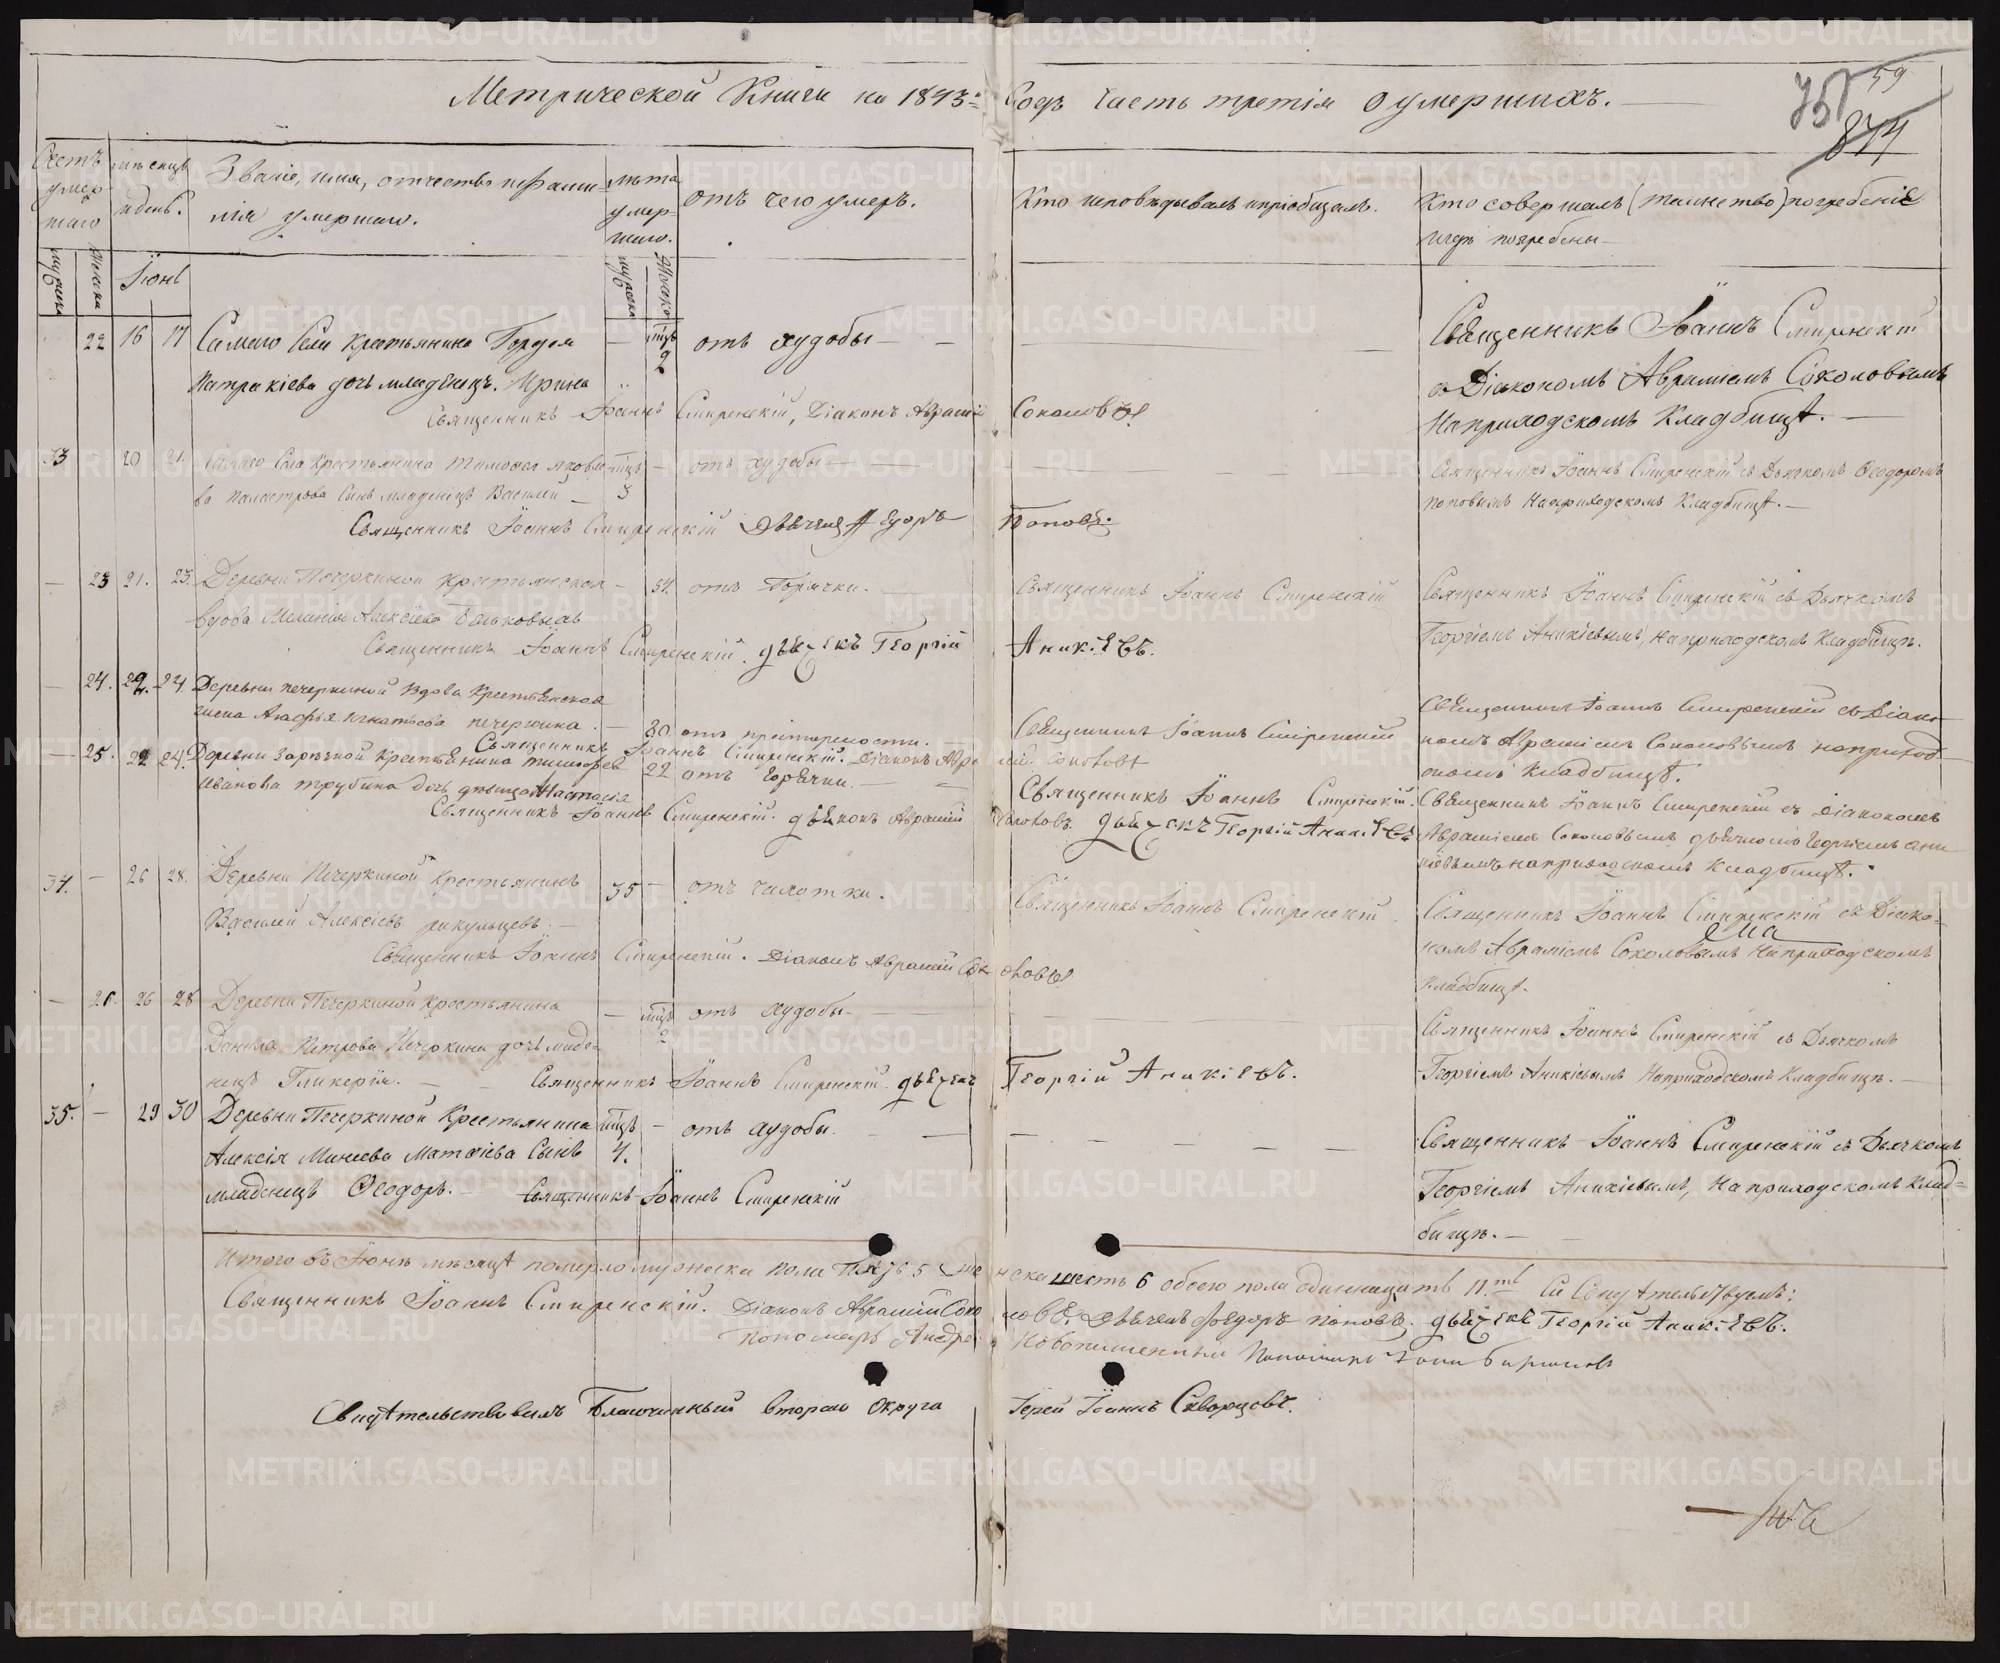 Метрической Книги на 1843й Годъ Часть третія о умершихъ.
59
75
874
Счетъ умершаго
мѣсяцъ и день.
Званіе, имя, отчество и фамилія умершаго.
лѣта умершаго.
отъ чего умеръ.
Кто исповѣдывалъ и пріобщалъ.
Кто совершалъ (таинство) погребеніе и гдѣ погребены
мужеска
женска
Іюнь
мужеска
женска
22 16 17 Самаго Села крестьянина Гордея — мцъ отъ худобы — — Священникъ Іоаннъ Смиренскій
Патракіева дочь младенецъ. Ирина 2 съ Діякономъ Авраміемъ Соколовымъ
Священникъ Іоаннъ Смиренскій, Діаконъ Аврамій Соколовъ На приходскомъ Кладбищѣ. —
33 20 21 Самаго Села Крестьянина Тимофея Яковле- мцъ — отъ худобы — — Священникъ Іоаннъ Смиренскій съ Дьячкомъ Ѳеодоромъ
ва сынъ младенецъ Василей — 3 Поповымъ На приходскомъ Кладбищѣ. —
Священникъ Іоаннъ Смиренскій Дьячекъ Ѳедоръ Поповъ.
— 23 21. 23. Деревни Печеркиной крестьянская — 54. отъ Горячки. — Священникъ Іоаннъ Смиренскій Священникъ Іоаннъ Смиренскій съ Дьячкомъ
вдова Меланія Алексіева Георгіемъ Аникіевымъ, На приходскомъ Кладбищѣ.
Священникъ Іоаннъ Смиренскій. дьячекъ Георгій Аникіевъ.
— 24. 22. 24. Деревни печеркиной вдова Крестьянская
жена Агафья Игнатьева печеркина. — 80 отъ престарелости. — Священникъ Іоаннъ Смиренскій Священникъ Іоаннъ Смиренскій съ Діако-
Священникъ Іоаннъ Смиренскій. Діаконъ Аврамій Соколовъ номъ Авраміемъ Соколовымъ на приход-
скомъ Кладбищѣ.
— 25. 22 24. Деревни Заречной крестьянина Тимофея
Иванова Трубина дочь девица Настасія 22 отъ горячки. — Священникъ Іоаннъ Смиренскій. Священникъ Іоаннъ Смиренскій съ Діакономъ
Священникъ Іоаннъ Смиренскій. дьяконъ Аврамій Соколовъ. дьячекъ Георгій Аникіевъ Авраміемъ Соколовымъ дьячкомъ Георгіемъ Ани-
кіевымъ на приходскомъ Кладбищѣ.
34. — 26 28. Деревни Печеркиной Крестьянинъ 35 — отъ чахотки. Священникъ Іоаннъ Смиренскій Священникъ Іоаннъ Смиренскій съ Діако-
Василей Алексіевъ номъ Авраміемъ Соколовымъ На приходскомъ
Священникъ Іоаннъ Смиренскій. Діаконъ Аврамій Соколовъ Кладбищѣ.
— 26. 26 28 Деревни Печеркиной крестьянина — мцъ отъ худобы — — Священникъ Іоаннъ Смиренскій съ Дьячкомъ
Данила Петрова Печеркина дочь младе- 2 Георгіемъ Аникіевымъ На приходскомъ Кладбищѣ. —
нецъ Гликерія. — Священникъ Іоаннъ Смиренскій. дьячекъ Георгій Аникіевъ.
35. — 29 30 Деревни Печеркиной Крестьянина мцъ — отъ худобы. — — Священникъ Іоаннъ Смиренскій съ Дьячкомъ
Алексія Минеева Матѳіева Сынъ 4. Георгіемъ Аникіевымъ, На приходскомъ Клад-
младенецъ Ѳеодоръ. — Священникъ Іоаннъ Смиренскій бищѣ. —
Итого въ Іюнѣ мѣсяцѣ померло мужеска пола пять 5 женска шесть 6 обоего пола одиннацать 11.ть Свидѣтельствуемъ:
Священникъ Іоаннъ Смиренскій. Діаконъ Аврамій Соколовъ. Дьячекъ Ѳедоръ Поповъ. дьячекъ Георгій Аникіевъ.
Пономарь Андрей Пономарь
Свидѣтельствовалъ Благочинный втораго округа Іерей Іоаннъ Скворцовъ.
METRIKI.GASO-URAL.RU